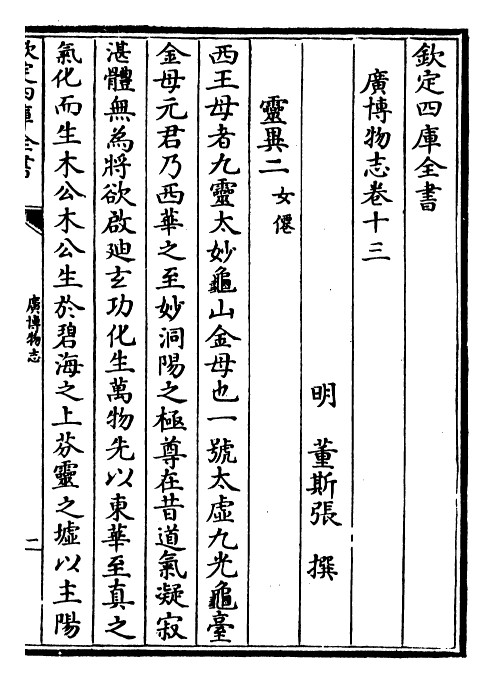 欽定四庫全書
廣博物志卷十三
明 董斯張 撰
靈異二 女僊
西王母者九靈太妙龜山金母也一號太虛九光龜臺
金母元君乃西華之至妙洞陽之極尊在昔道氣凝寂
湛體無為將欲啟廸玄功化生萬物先以東華至真之
氣化而生木公木公生於碧海之上芬靈之墟以主陽
欽定四庫全書
廣博物志
二